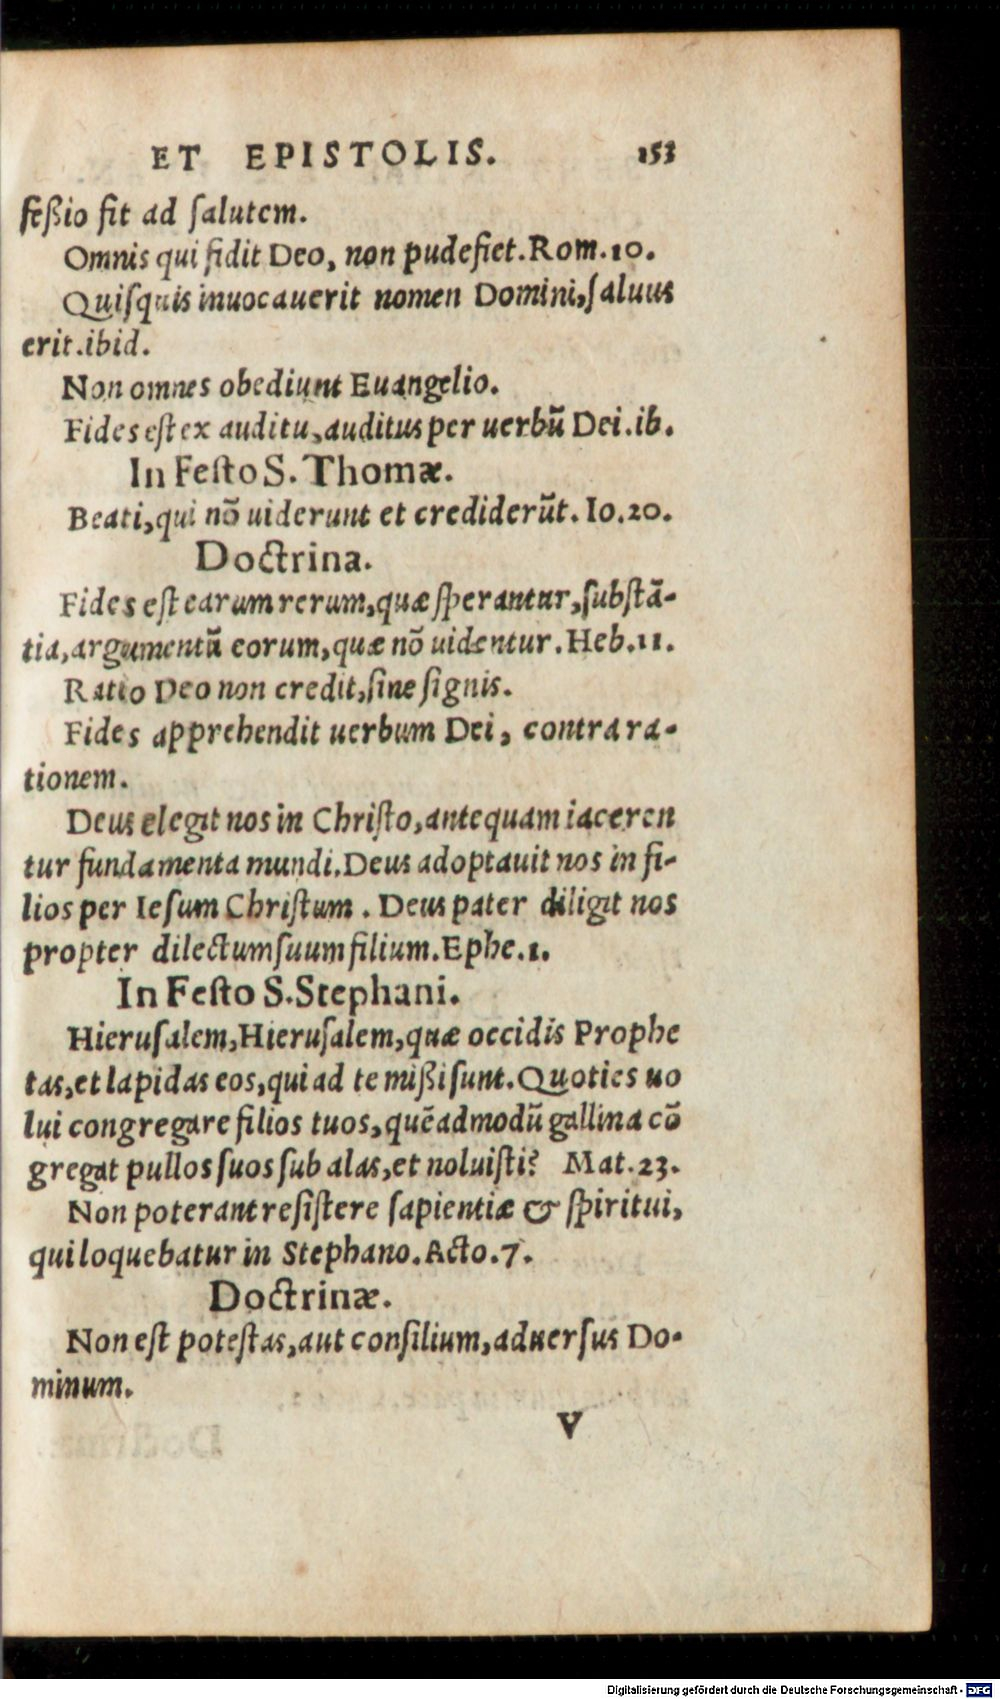 ET EPISTOLIS. 153
feßio fit ad ſalutem.
Omnis qui fidit Deo, non pudefiet. Rom. 10.
Quiſquis inuocauerit nomen Domini, ſaluus
erit. ibid.
Non omnes obediunt Euangelio.
Fides eſt ex auditu, auditus per uerbū Dei. ib.
In Feſto S. Thomæ.
Beati, qui nō uiderunt et crediderūt. Io. 20.
Doctrina.
Fides eſt earum rerum, quæ ſperantur, ſubſtā-
tia, argumentū eorum, quæ nō uidentur. Heb. 11.
Ratio Deo non credit, ſine ſignis.
Fides apprehendit uerbum Dei, contra ra-
tionem.
Deus elegit nos in Chriſto, antequam iaceren
tur fundamenta mundi. Deus adoptauit nos in fi-
lios per Ieſum Chriſtum. Deus pater diligit nos
propter dilectum ſuum filium. Ephe. 1.
In Feſto S. Stephani.
Hieruſalem, Hieruſalem, quæ occidis Prophe
tas, et lapidas eos, qui ad te mißi ſunt. Quoties uo
lui congregare filios tuos, quēadmodū gallina cō
gregat pullos ſuos ſub alas, et noluiſti? Mat. 23.
Non poterant reſiſtere ſapientiæ & ſpiritui,
qui loquebatur in Stephano. Acto. 7.
Doctrinæ.
Non eſt poteſtas, aut conſilium, aduerſus Do-
minum.
V
Digitalisierung gefördert durch die Deutsche Forschungsgemeinschaft - DFG